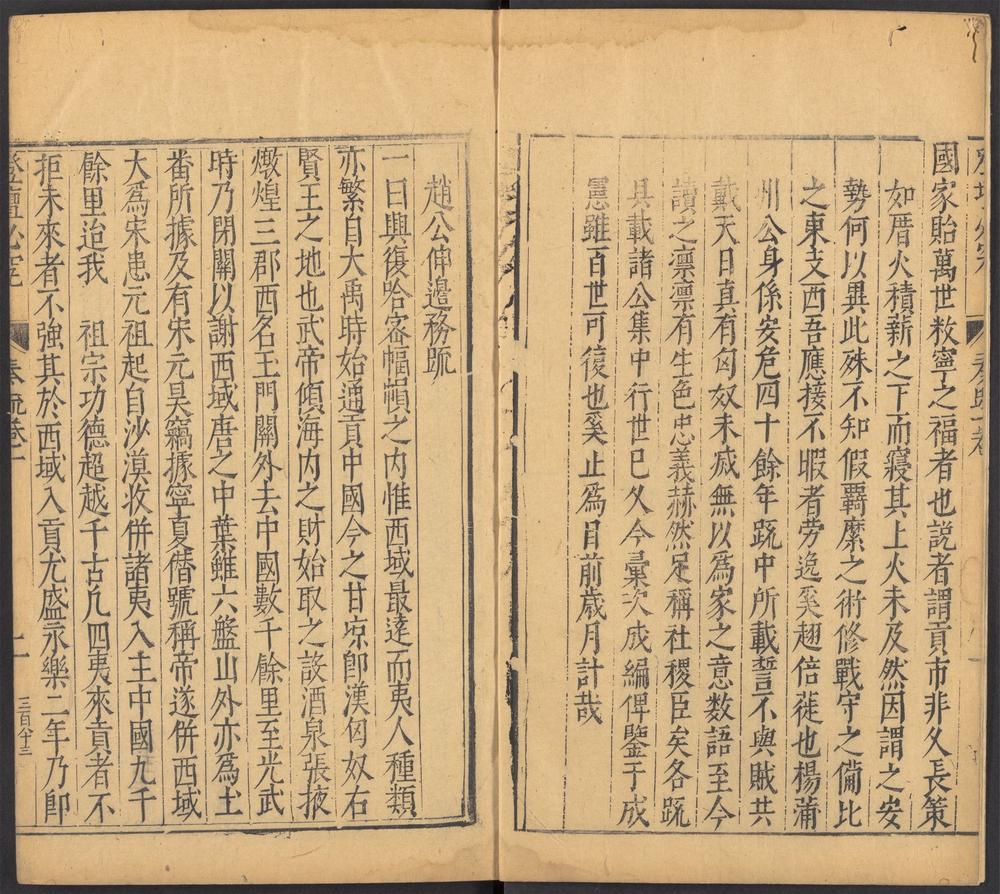 國家貽萬世敉寧之福者也説者謂貢市非久長策
如厝火積新之下而寢其上火未及然因謂之安
勢何以異此殊不知假覊縻之術修戰守之備比
之東支西吾應接不暇者勞逸奚趐倍蓰也楊蒲
州公身係安危四十餘年䟽中所載誓不與賊共
戴天日真有匈奴未烕無以爲家之意数語至今
讀之凛凛有生色忠義赫然足稱社稷臣矣各䟽
具載諸公集中行世已久今彙次成編俾鑒于成
憲雖百世可復也奚止爲目前歳月計哉
趙公伸邊務䟽
一曰興復哈宻幅𢄙之内惟西域最逺而夷人種類
亦繁自大禹時始通貢中國今之甘凉卽漢匈奴右
賢王之地也武帝傾海内之財始取之設酒泉張掖
燉煌三郡西名玉門關外去中國數千餘里至光武
時乃閉關以謝西域唐之中葉雖六盤山外亦爲土
番所據及有宋元昊竊據寧夏僣號稱帝遂併西域
大爲宋患元祖起自沙漠收併諸夷入主中國九千
餘里迨我 祖宗功德超越千古凢四夷來貢者不
拒未來者不強其於西域入貢尤盛永樂二年乃卽
登壇必究
奏疏卷一
二
三百八十三